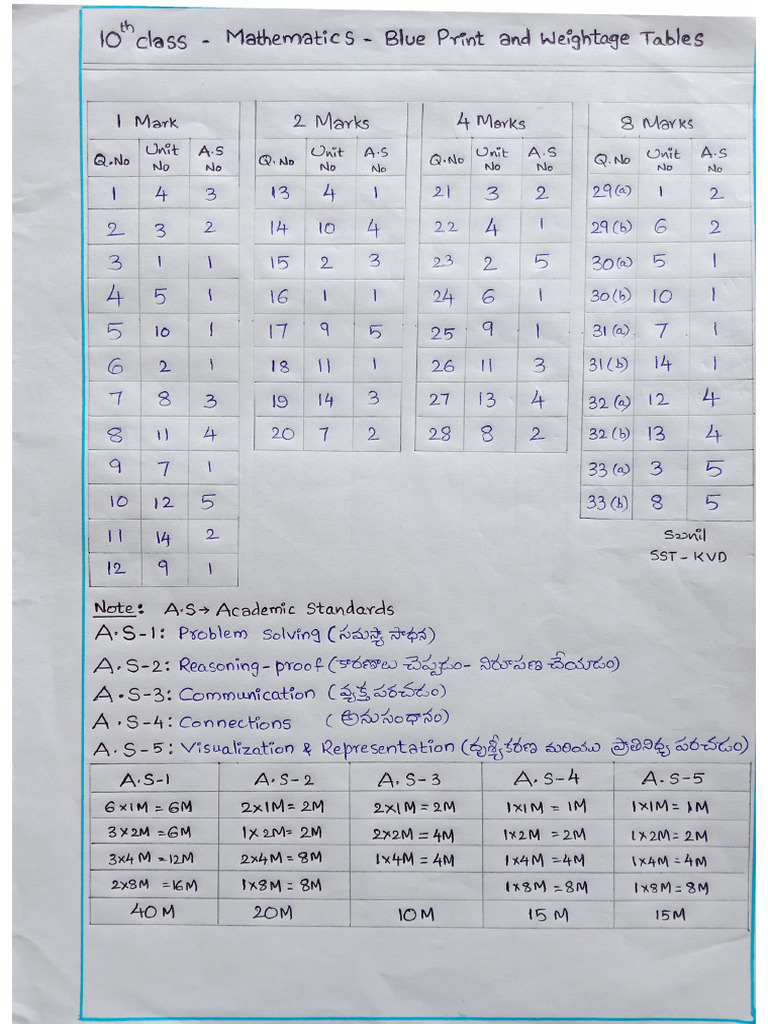 10th class - Mathematics - Blue Print and Weightage Tables
1 Mark 2 Marks 4 Marks 8 Marks
Q.No Unit No A.S No Q.No Unit No A.S No Q.No Unit No A.S No Q.No Unit No A.S No
1 4 3 13 4 1 21 3 2 29(a) 1 2
2 3 2 14 10 4 22 4 1 29(b) 6 2
3 1 1 15 2 3 23 2 5 30(a) 5 1
4 5 1 16 1 1 24 6 1 30(b) 10 1
5 10 1 17 9 5 25 9 1 31(a) 7 1
6 2 1 18 11 1 26 11 3 31(b) 14 1
7 8 3 19 14 3 27 13 4 32(a) 12 4
8 11 4 20 7 2 28 8 2 32(b) 13 4
9 7 1 33(a) 3 5
10 12 5 33(b) 8 5
11 14 2 Sunil
12 9 1 SST - KVD
Note: A.S → Academic Standards
A.S-1: Problem solving (సమస్యా సాధన)
A.S-2: Reasoning-proof (కారణాలు చెప్పడం- నిరూపణ చేయడం)
A.S-3: Communication (వ్యక్తపరచడం)
A.S-4: Connections (అనుసంధానం)
A.S-5: Visualization & Representation (దృశ్యీకరణ మరియు ప్రాతినిధ్య పరచడం)
A.S-1 A.S-2 A.S-3 A.S-4 A.S-5
6x1M = 6M 2x1M = 2M 2x1M = 2M 1x1M = 1M 1x1M = 1M
3x2M = 6M 1x2M = 2M 2x2M = 4M 1x2M = 2M 1x2M = 2M
3x4M = 12M 2x4M = 8M 1x4M = 4M 1x4M = 4M 1x4M = 4M
2x8M = 16M 1x8M = 8M 1x8M = 8M 1x8M = 8M
40M 20M 10M 15M 15M